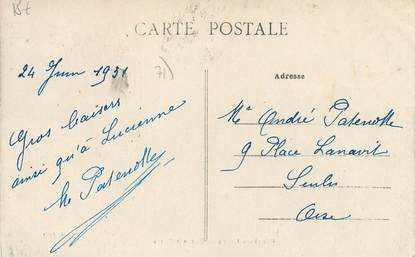 15€
CARTE POSTALE
24 Juin 1931
71)
Gros baisers
ainsi qu'à Lucienne
Me Patenotte
Adresse
Me André Patenotte
9 Place Lavarande
Senlis
Oise